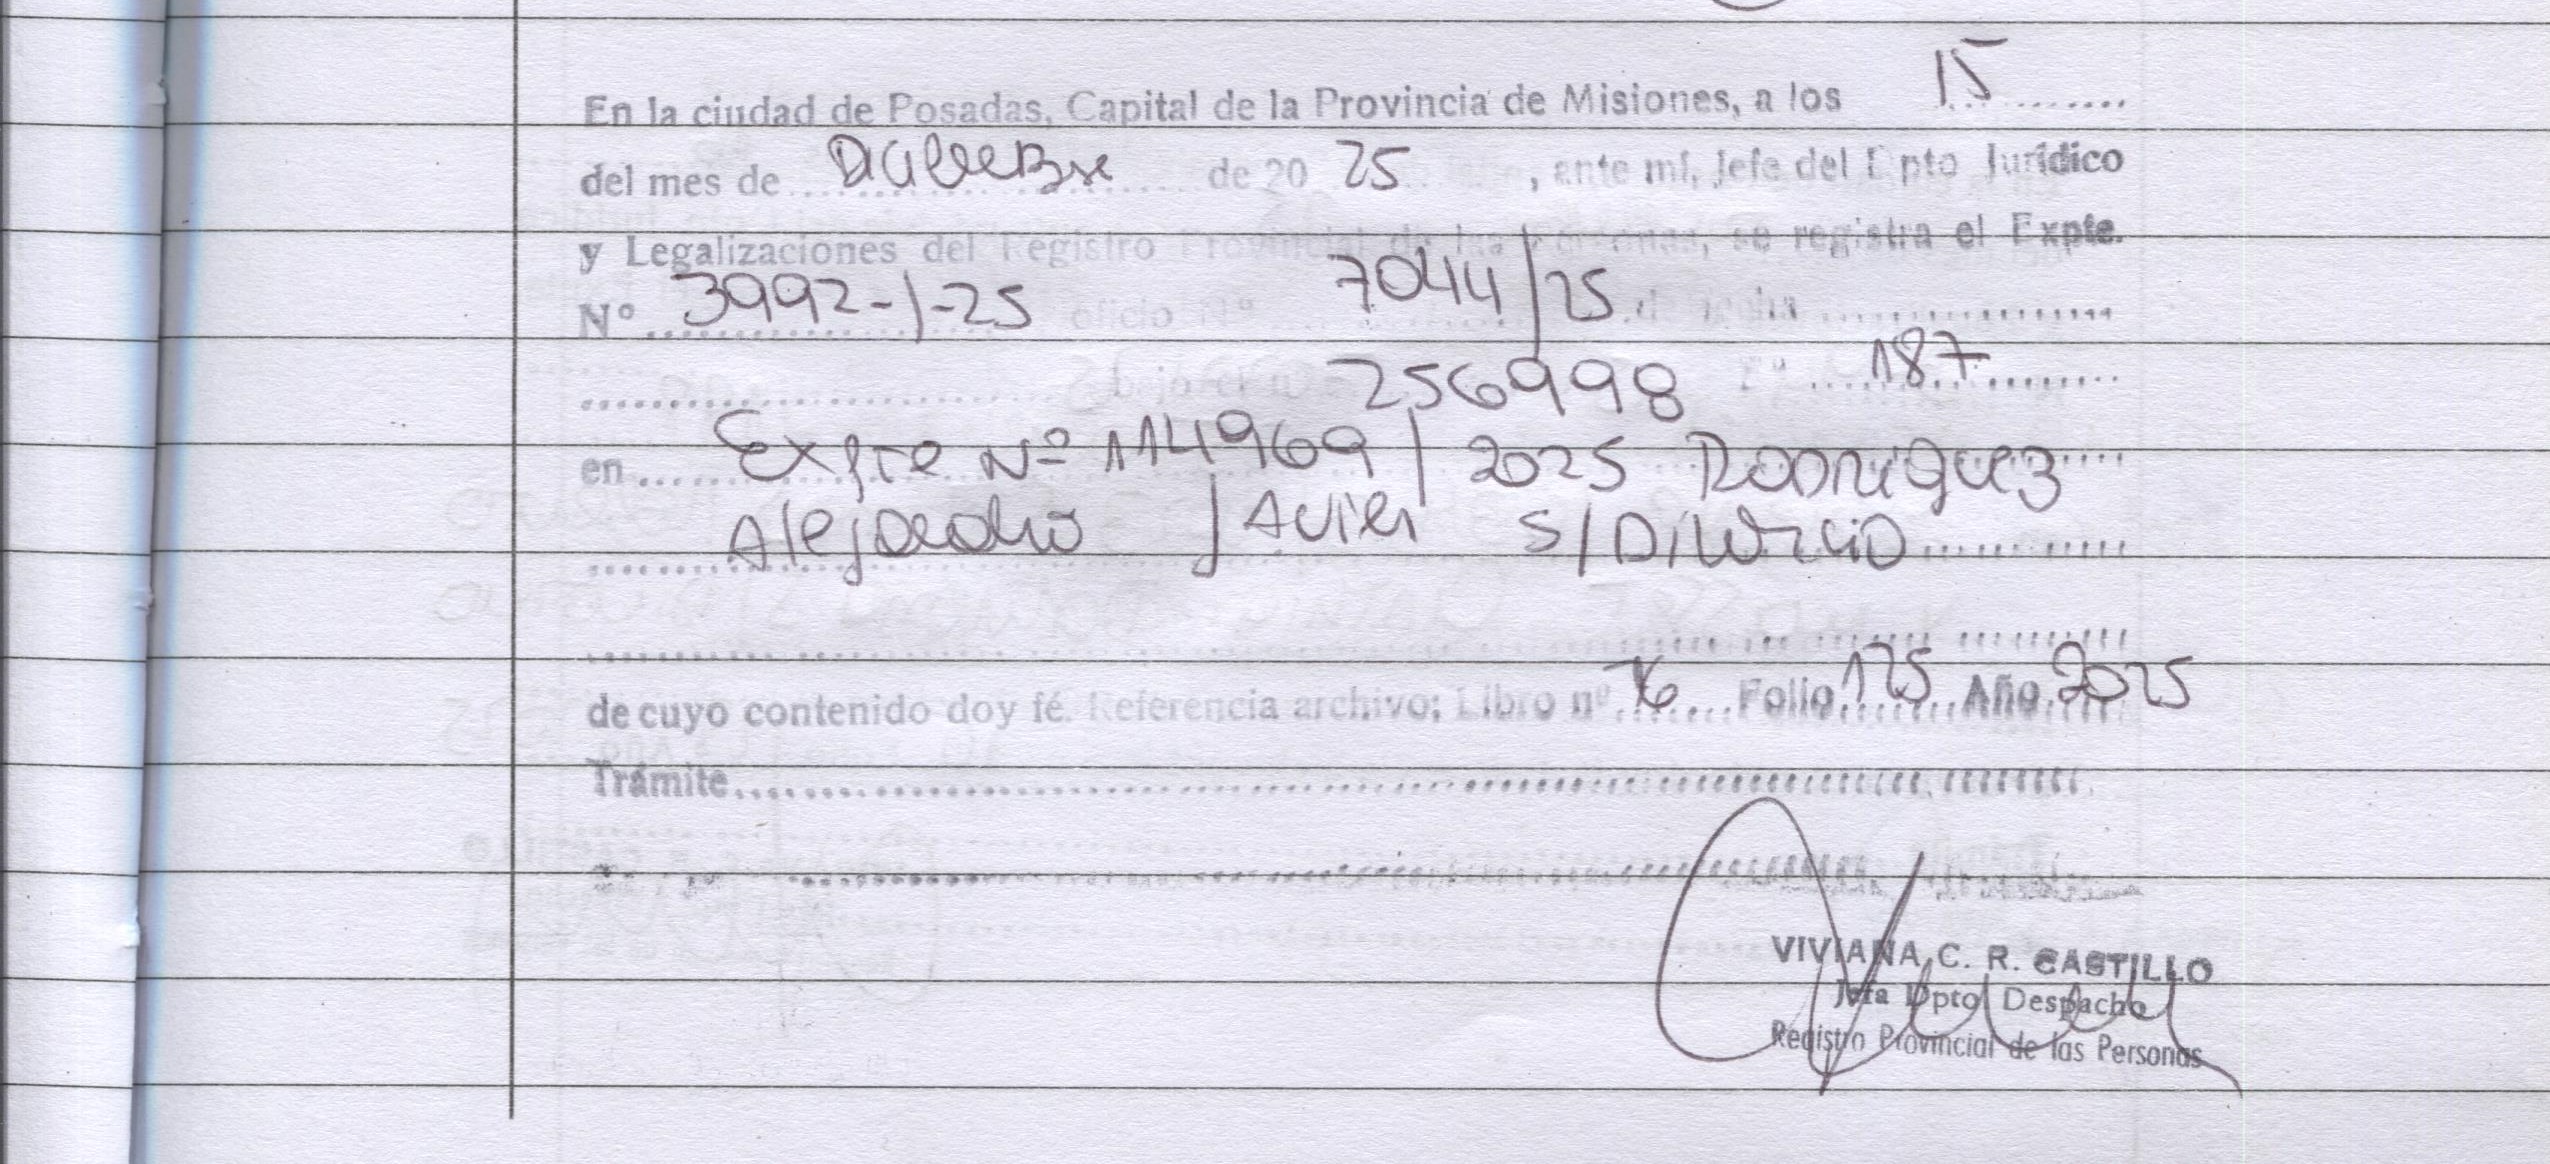 En la ciudad de Posadas, Capital de la Provincia de Misiones, a los 15
del mes de Diciembre de 20 25, ante mí, Jefe del Dpto Jurídico
y Legalizaciones del Registro Provincial de las Personas, se registra el Expte.
Nº 3992-1-25 oficio Nº 7044/25 de fecha
bajo 256998 Fº 187
en Expte Nº 114969/2025 Rodriguez
Alejandro Javier S/Divorcio
de cuyo contenido doy fé. Referencia archivo; Libro nº 76 Folio 125 Año 2025
Trámite
VIVIANA C. R. CASTILLO
Jefa Dpto Despacho
Registro Provincial de las Personas